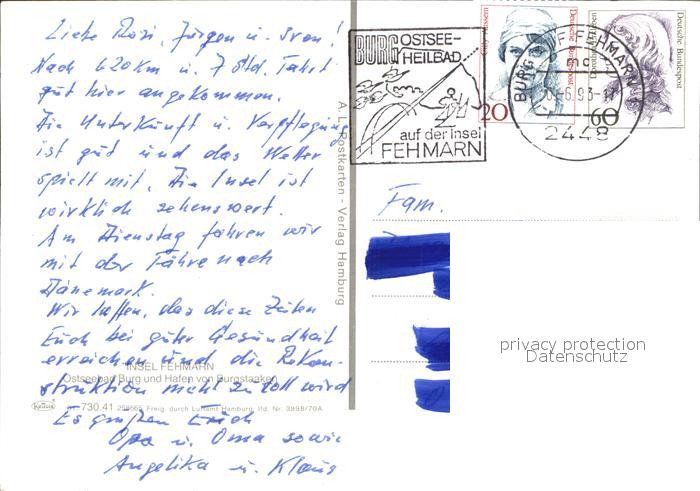 Liebe Rosi, Jürgen u. Sven!
Nach 620 km u. 7 Std. Fahrt
gut hier angekommen.
Die Unterkunft u. Verpflegung
ist gut und das Wetter
spielt mit. Die Insel ist
wirklich sehenswert.
Am Dienstag fahren wir
mit der Fähre nach
Dänemark.
Wir hoffen, das diese Zeilen
Euch bei guter Gesundheit
erreichen und die Rekon-
struktion nicht zu toll wird
Es grüßen Euch
Opa u. Oma sowie
Angelika u. Klaus
INSEL FEHMARN
Ostseebad Burg und Hafen von Burgstaaken
Krüger 730.41 Freig. durch Luftamt Hamburg, lfd. Nr. 3998/70A
A. L. Postkarten - Verlag Hamburg
BURG OSTSEE-
HEILBAD
auf der Insel
FEHMARN
Deutsche Bundespost
20
Deutsche Bundespost
60
BURG, FEHMARN
2448
Fam.
privacy protection
Datenschutz